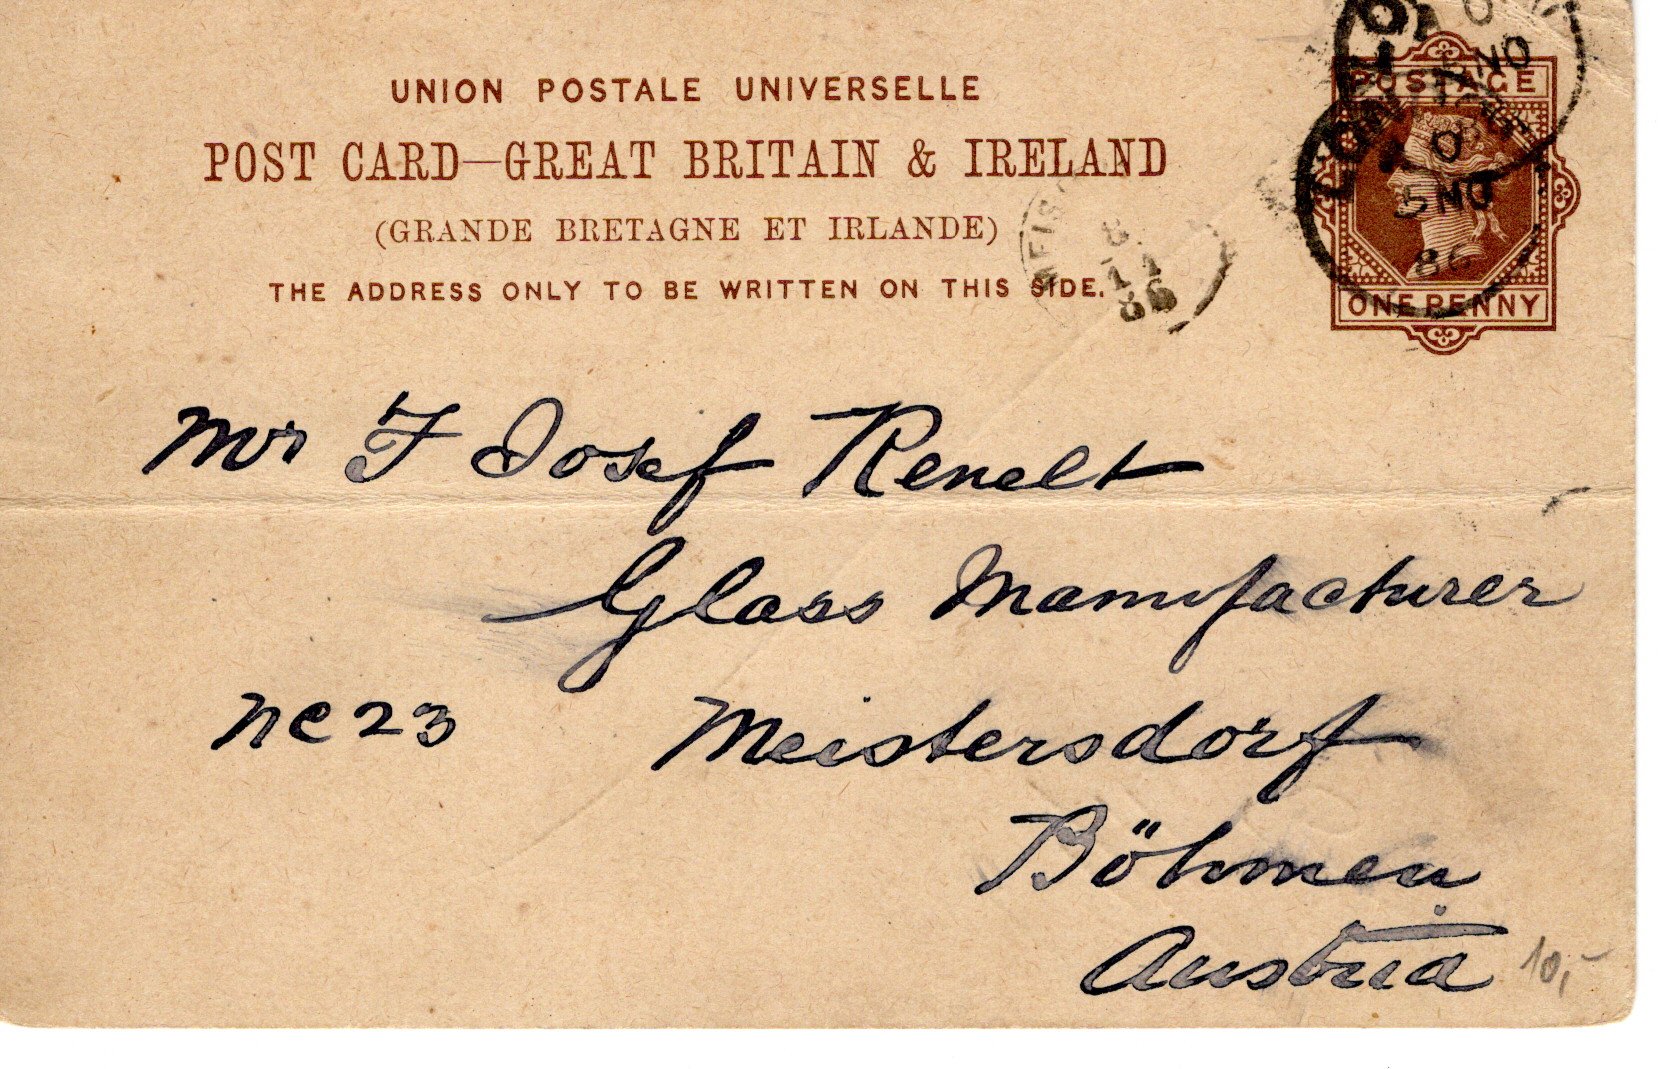 UNION POSTALE UNIVERSELLE
POST CARD—GREAT BRITAIN & IRELAND
(GRANDE BRETAGNE ET IRLANDE)
THE ADDRESS ONLY TO BE WRITTEN ON THIS SIDE.
POSTAGE
ONE PENNY
NO
O
5 NO
86
MEIS
8
11
86
Mr F Josef Renelt
Glass Manufacturer
Nº 23 Meistersdorf
Böhmen
Austria
10,-